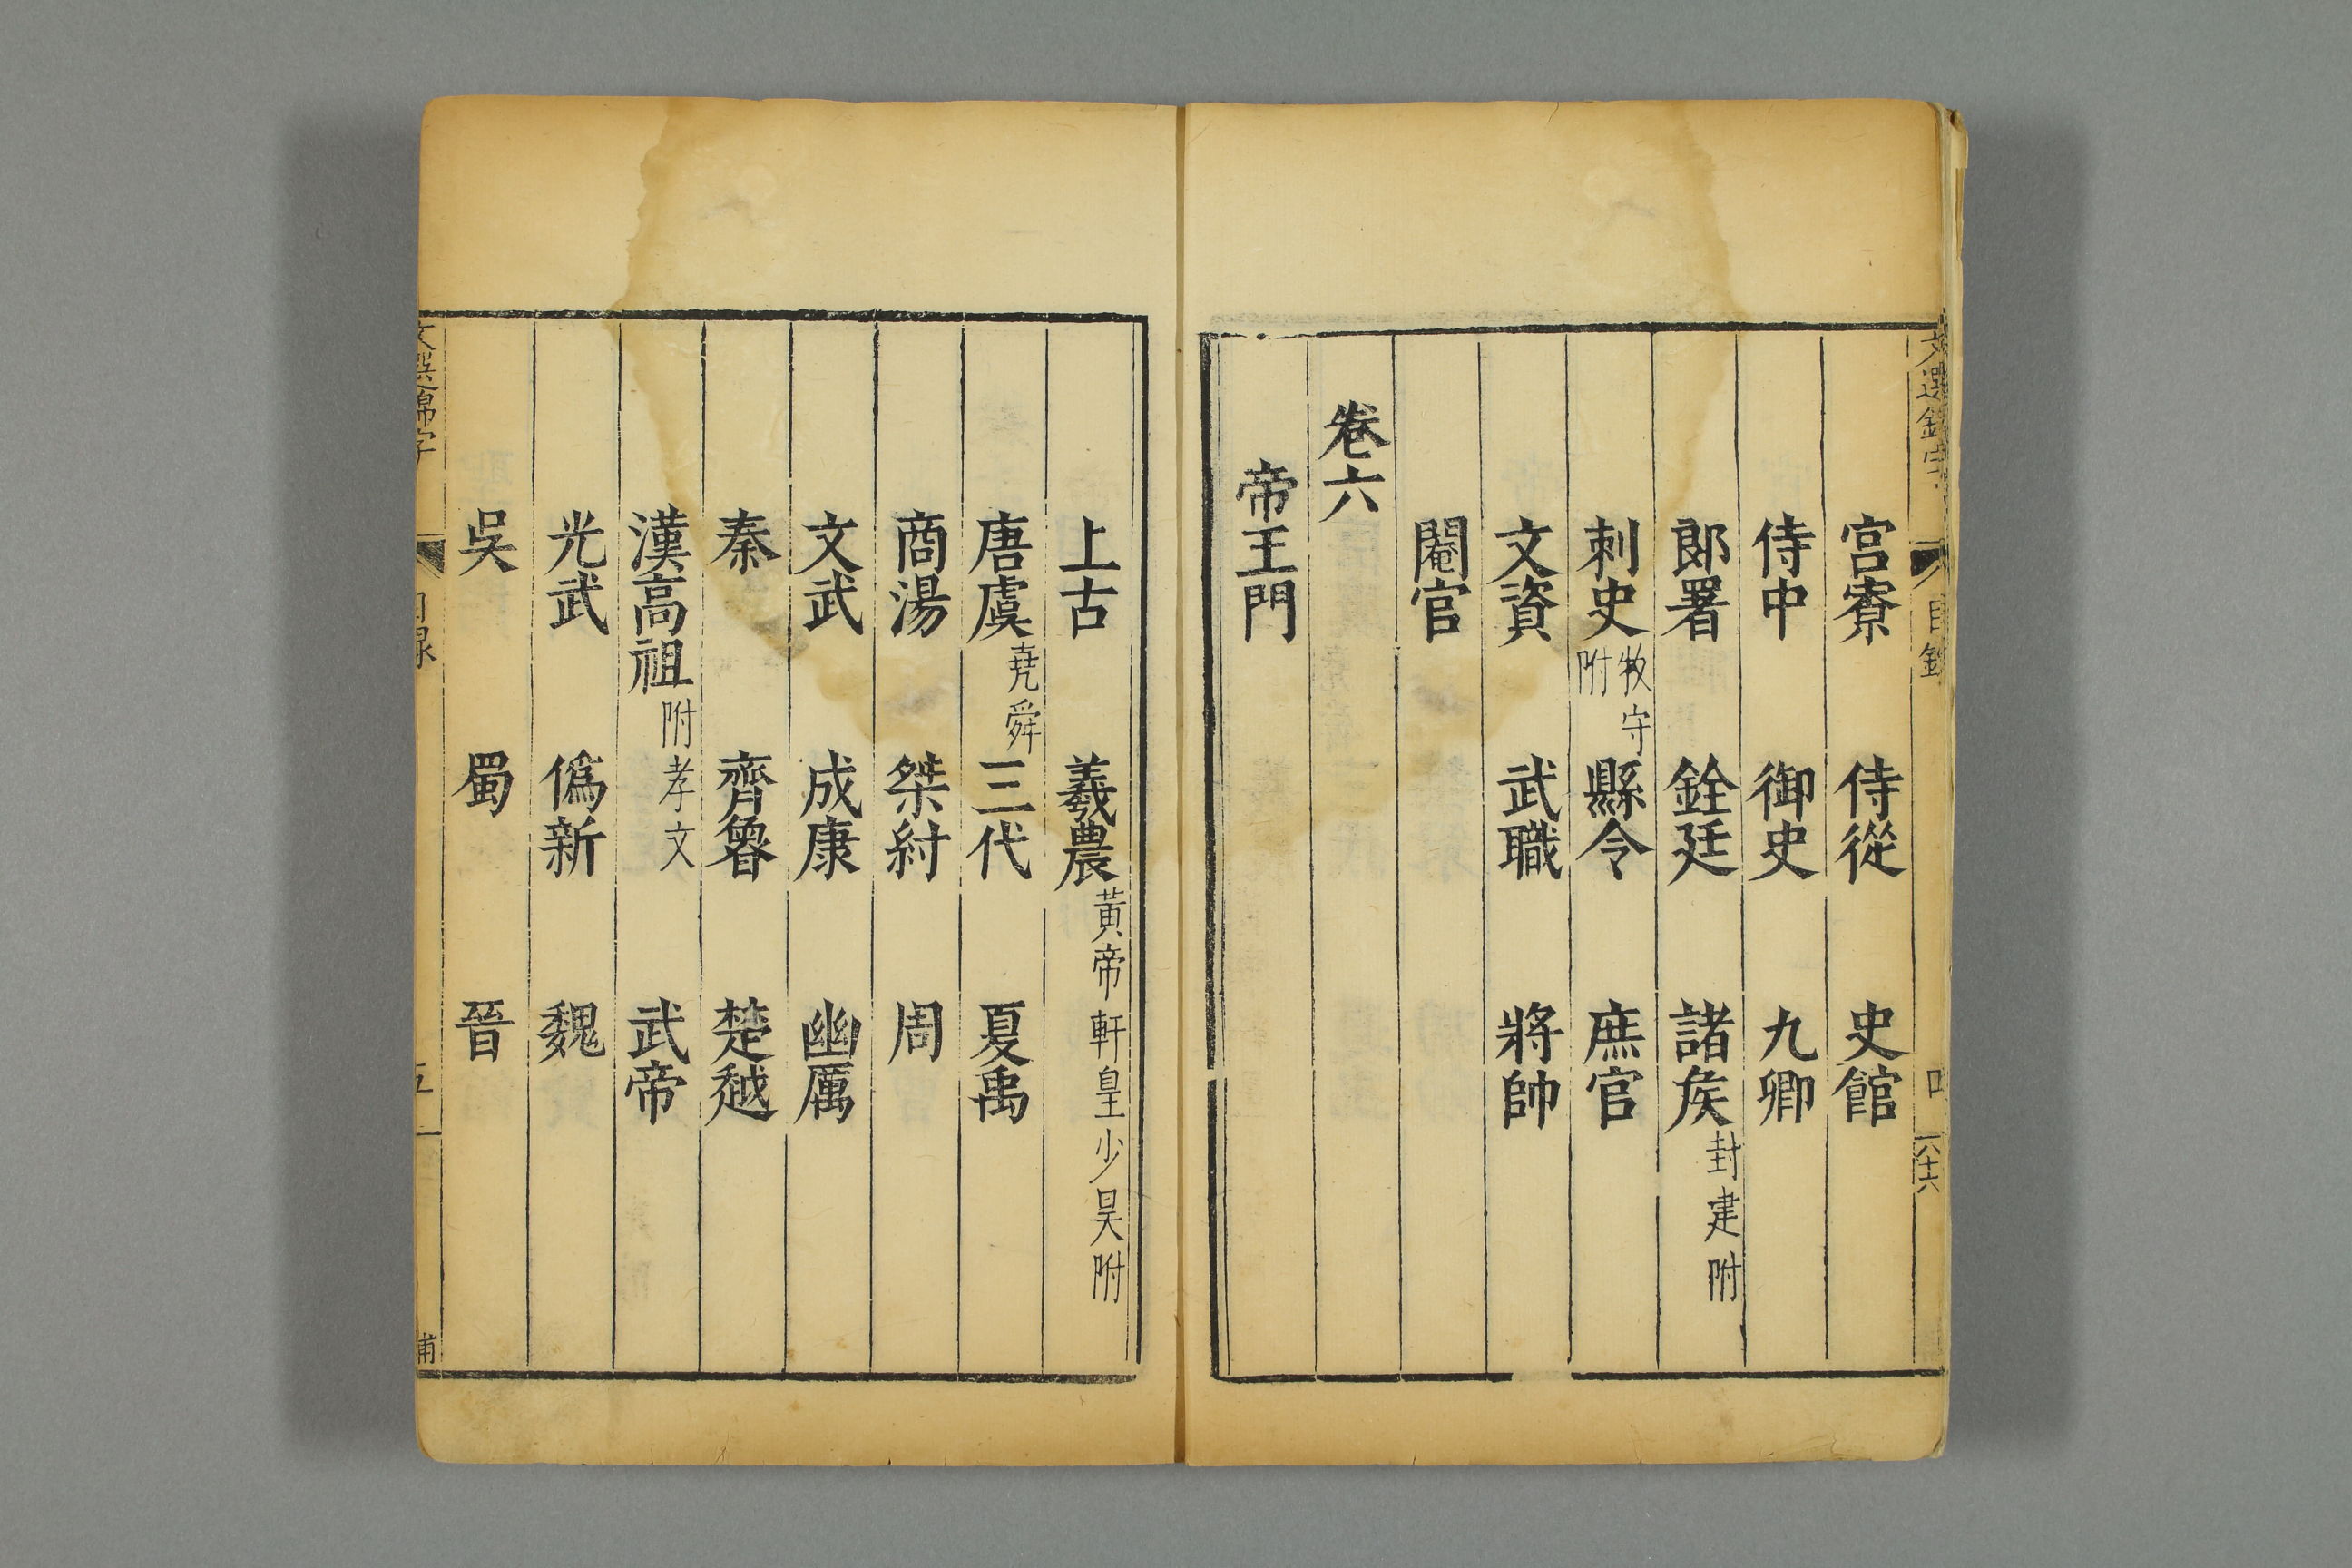 文選錦字 目錄
宮寮 侍從 史館
侍中 御史 九卿
郎署 銓廷 諸侯封建附
刺史牧守附 縣令 庶官
文資 武職 將帥
閹官
卷六
帝王門
上古 羲農黃帝軒皇少昊附
唐虞堯舜 三代 夏禹
商湯 桀紂 周
文武 成康 幽厲
秦 齊魯 楚越
漢高祖附孝文 武帝
光武 僞新 魏
吳 蜀 晉
文選錦字 目錄 五